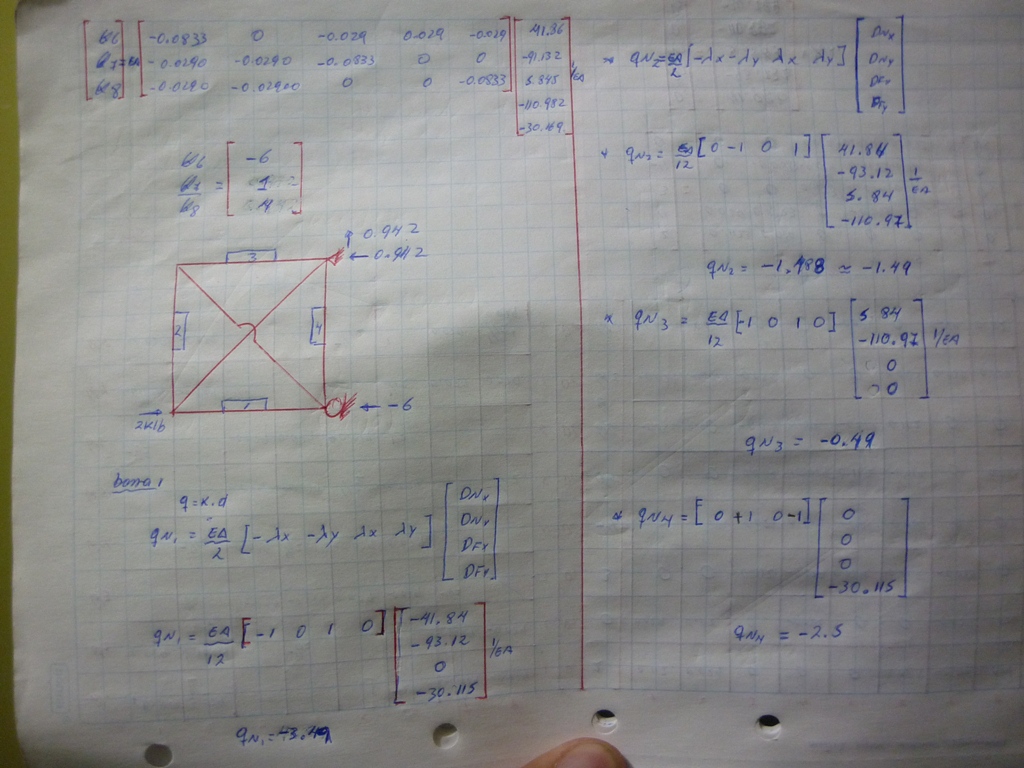 -0.0833 0 -0.029 0.029 -0.029
-0.0290 -0.0290 -0.0833 0 0
-0.0290 -0.02900 0 0 -0.0833
41.36
-91.132
5.845
-110.982
1/EA
-6
↑ 0.942
← 0.942
3
2
4
1
2klb
← -6
q=k.d
qN1 = EA/2 [-λx -λy λx λy] [DNx DNy DFx DFy]
qN1 = EA/12 [-1 0 1 0] [-41.84 -93.12 0 -30.115] 1/EA
qN1 = -3.49
qN2 = EA/2 [-λx -λy λx λy] [DNx DNy DFx DFy]
qN2 = EA/12 [0 -1 0 1] [41.84 -93.12 5.84 -110.97] 1/EA
qN2 = -1.488 ≈ -1.49
qN3 = EA/12 [-1 0 1 0] [5.84 -110.97 0 0] 1/EA
qN3 = -0.49
qN4 = [0 +1 0 -1] [0 0 0 -30.115]
qN4 = -2.5